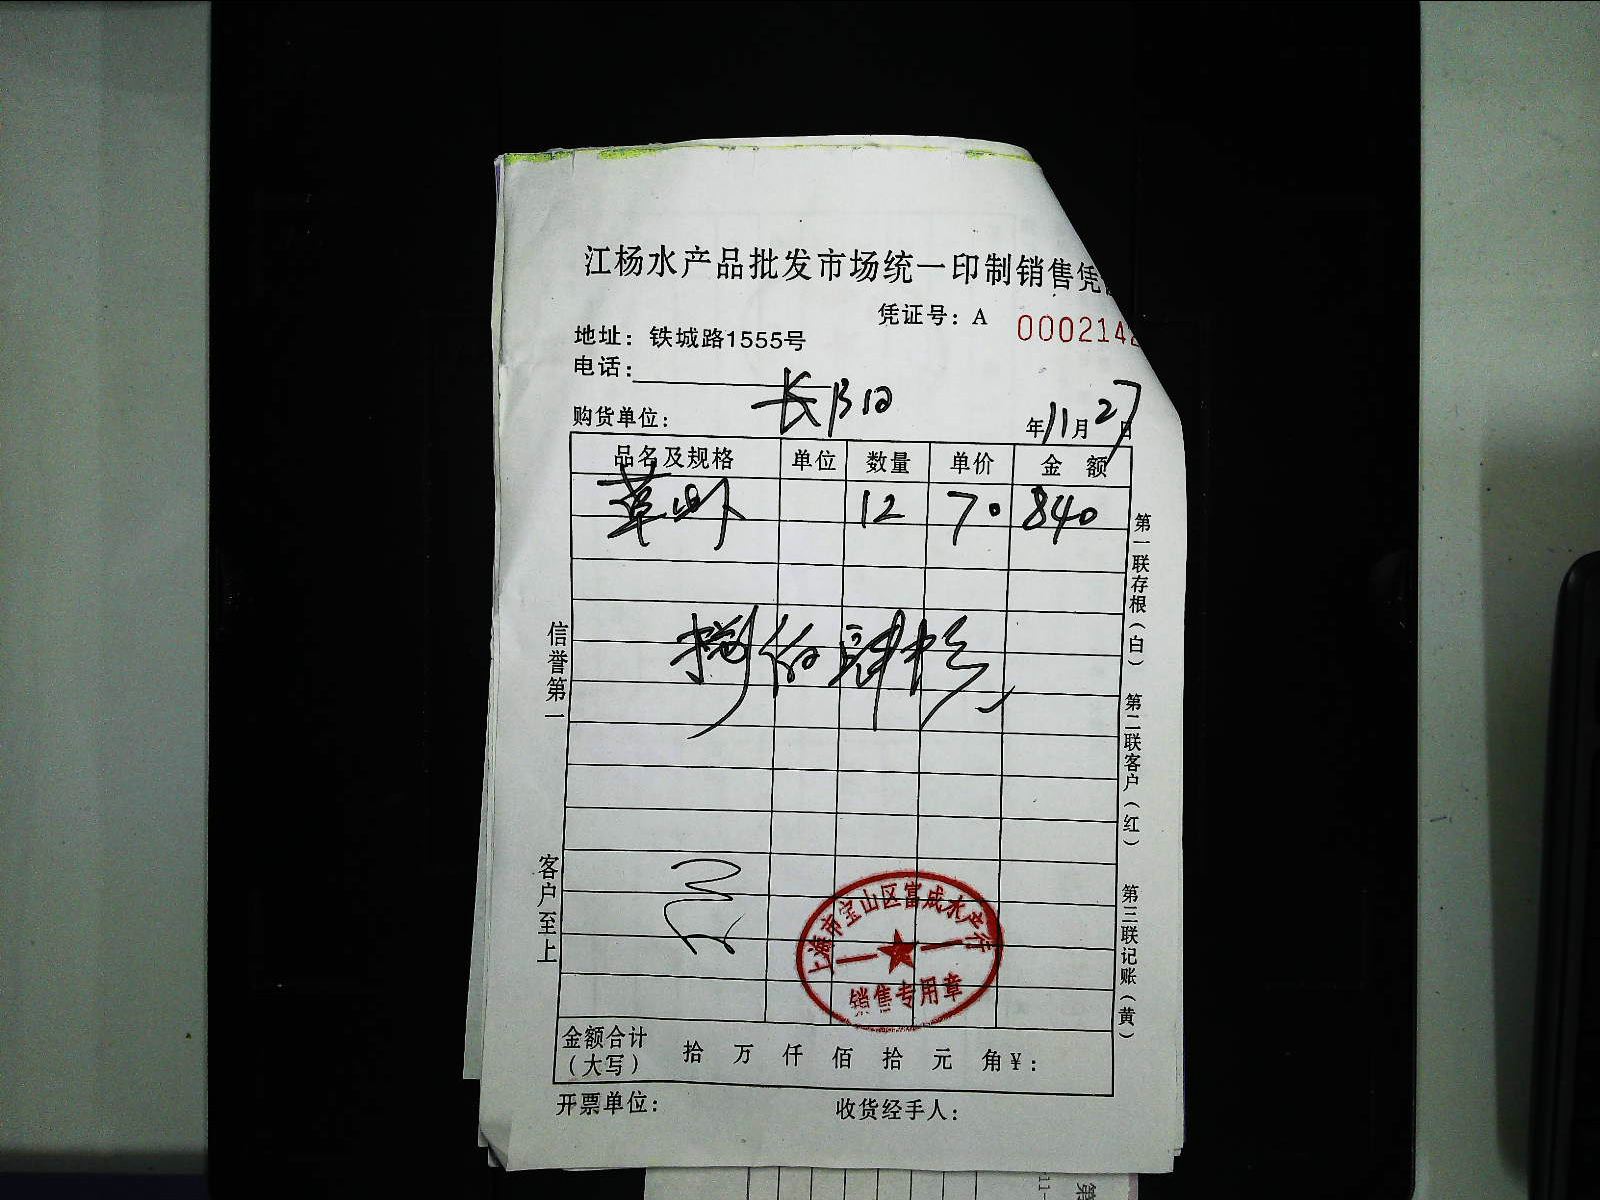 江杨水产品批发市场统一印制销售凭
凭证号：A 000214
地址：铁城路1555号
电话：
购货单位： 长阳 年11月27日
品名及规格 单位 数量 单价 金 额
草虾 12 70 840
捌佰肆拾
信誉第一
客户至上
第一联存根（白）
第二联客户（红）
第三联记账（黄）
上海市宝山区富成水产行
销售专用章
金额合计
（大写） 拾 万 仟 佰 拾 元 角￥：
开票单位： 收货经手人：